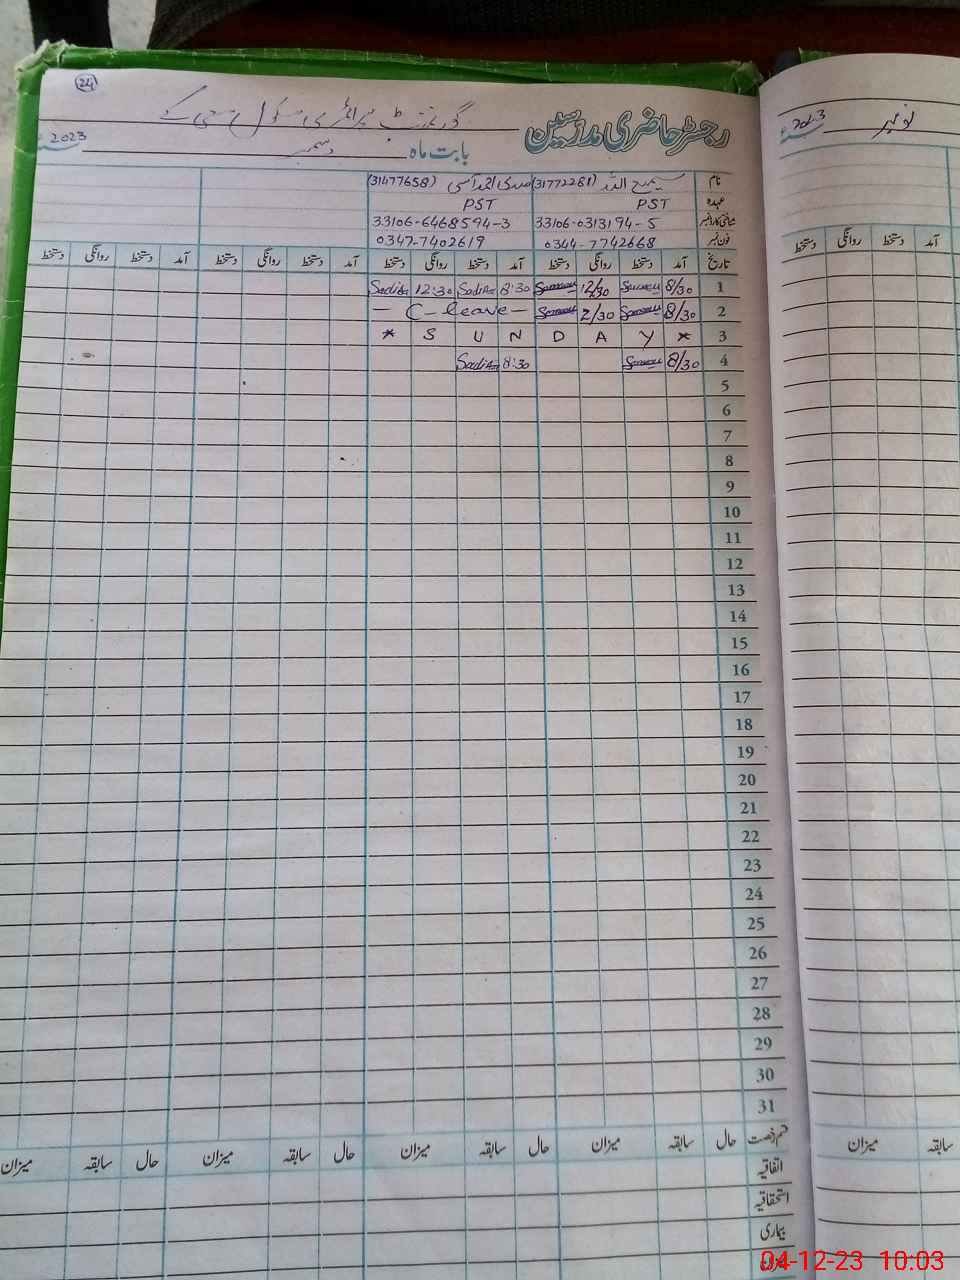 24
گورنمنٹ پرائمری سکول
رجسٹر حاضری مدرسین
بابت ماہ دسمبر 2023ء
نام سمیع اللہ (31772281) (31477658)
عہدہ PST PST
شناختی کارڈ نمبر 33106-0313194-5 33106-6468594-3
فون نمبر 0344-7742668 0347-7402619
تاریخ آمد دستخط روانگی دستخط آمد دستخط روانگی دستخط آمد دستخط روانگی دستخط آمد دستخط روانگی دستخط
1 8/30 12/30 8:30 12:30
2 8/30 2/30 — C-leave —
3 * S U N D A Y *
4 8/30 8:30
5
6
7
8
9
10
11
12
13
14
15
16
17
18
19
20
21
22
23
24
25
26
27
28
29
30
31
قسم رخصت حال سابقہ میزان حال سابقہ میزان حال سابقہ میزان حال سابقہ میزان
اتفاقیہ
استحقاقیہ
بیماری
نومبر 2023ء
آمد دستخط روانگی دستخط
سابقہ میزان
04-12-23 10:03